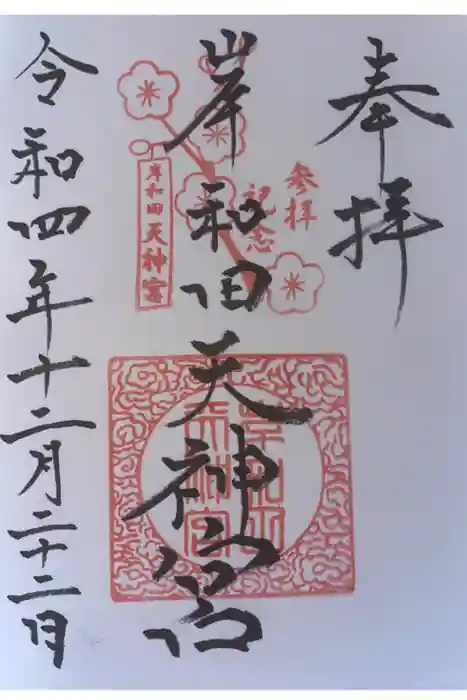 奉拝
参拝
記念
岸和田天神宮
岸和田天神宮
岸和田
天神宮
令和四年十二月二十二日